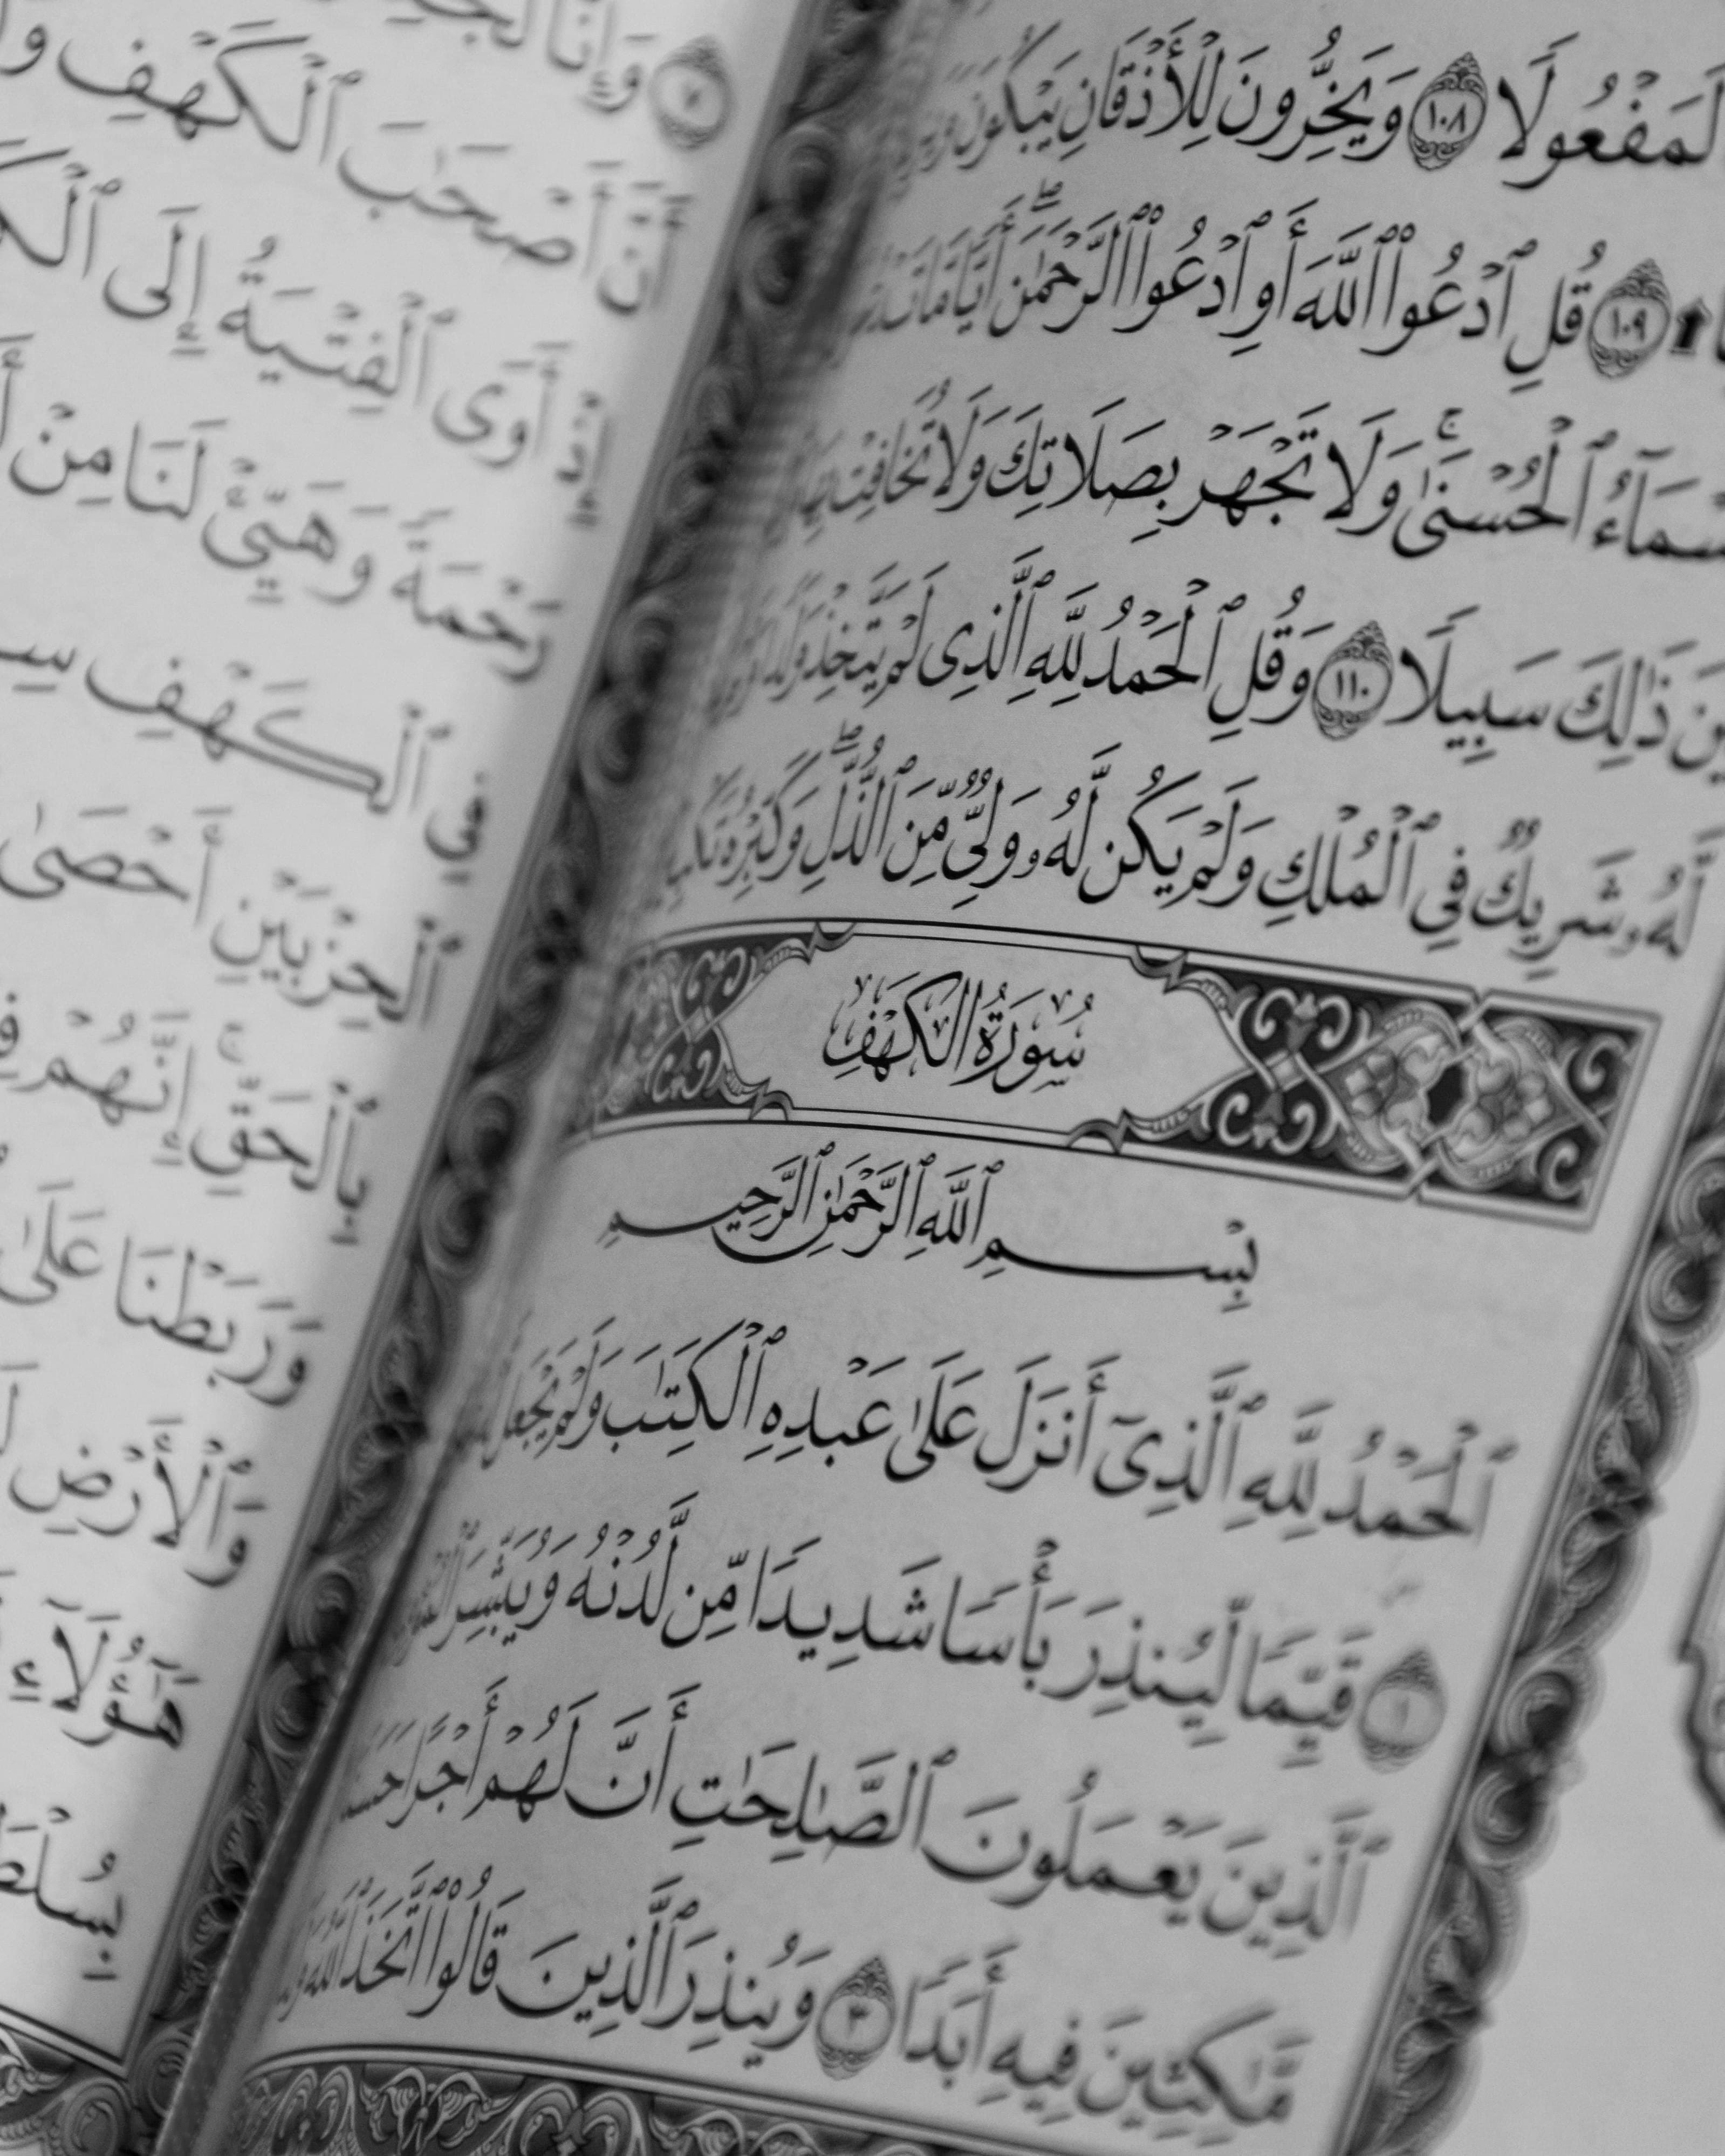 لَمَفْعُولًا ١٠٨ وَيَخِرُّونَ لِلْأَذْقَانِ يَبْكُونَ
١٠٩ قُلِ ٱدْعُوا۟ ٱللَّهَ أَوِ ٱدْعُوا۟ ٱلرَّحْمَٰنَ ۖ أَيًّا مَّا
ٱلْحُسْنَىٰ ۚ وَلَا تَجْهَرْ بِصَلَاتِكَ وَلَا تُخَافِتْ
ذَٰلِكَ سَبِيلًا ١١٠ وَقُلِ ٱلْحَمْدُ لِلَّهِ ٱلَّذِى لَمْ يَتَّخِذْ
لَّهُۥ شَرِيكٌ فِى ٱلْمُلْكِ وَلَمْ يَكُن لَّهُۥ وَلِىٌّ مِّنَ ٱلذُّلِّ ۖ وَكَبِّرْهُ
سُورَةُ الكَهْفِ
بِسْمِ ٱللَّهِ ٱلرَّحْمَٰنِ ٱلرَّحِيمِ
ٱلْحَمْدُ لِلَّهِ ٱلَّذِىٓ أَنزَلَ عَلَىٰ عَبْدِهِ ٱلْكِتَٰبَ وَلَمْ يَجْعَل
١ قَيِّمًا لِّيُنذِرَ بَأْسًا شَدِيدًا مِّن لَّدُنْهُ وَيُبَشِّرَ
ٱلَّذِينَ يَعْمَلُونَ ٱلصَّٰلِحَٰتِ أَنَّ لَهُمْ أَجْرًا حَسَنًا
مَّٰكِثِينَ فِيهِ أَبَدًا ٣ وَيُنذِرَ ٱلَّذِينَ قَالُوا۟ ٱتَّخَذَ ٱللَّهُ
٧ وَإِنَّا
أَنَّ أَصْحَٰبَ ٱلْكَهْفِ
إِذْ أَوَى ٱلْفِتْيَةُ إِلَى
رَحْمَةً وَهَيِّئْ لَنَا مِنْ
فِى ٱلْكَهْفِ
ٱلْحِزْبَيْنِ أَحْصَىٰ
بِٱلْحَقِّ ۚ إِنَّهُمْ
وَرَبَطْنَا عَلَىٰ
وَٱلْأَرْضِ
هَٰٓؤُلَآءِ